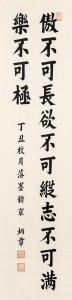 傲不可長欲不可縱志不可滿
樂不可極
丁丑枚月落墨錦宸 炳章